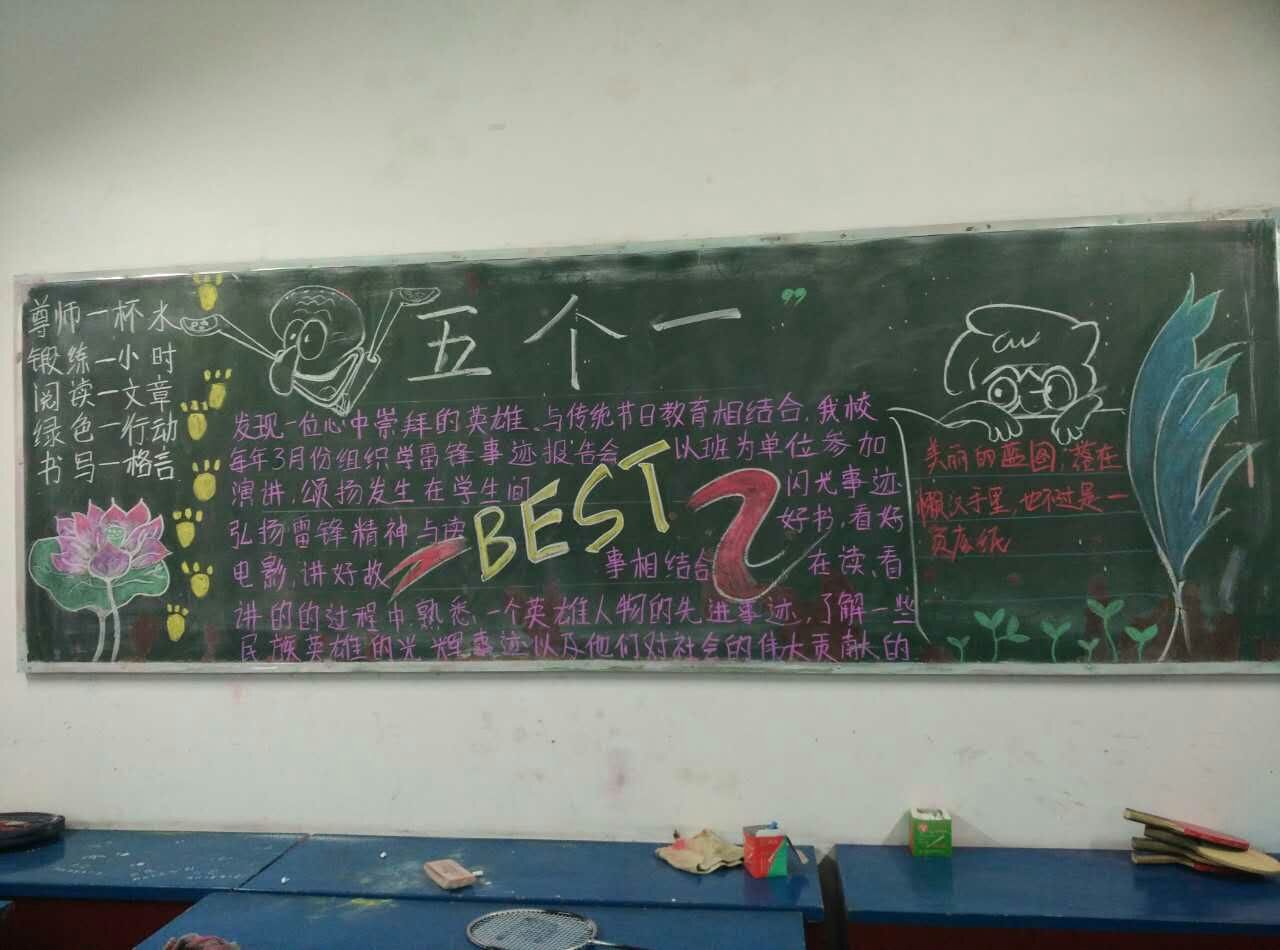 五个一”
尊师一杯水
锻练一小时
阅读一文章
绿色一行动
书写一格言
发现一位心中崇拜的英雄、与传统节日教育相结合，我校
每年3月份组织学雷锋事迹报告会 以班为单位参加
演讲，颂扬发生在学生间 闪光事迹
弘扬雷锋精神与读 好书，看好
电影，讲好故 事相结合 在读、看
讲的的过程中熟悉，一个英雄人物的先进事迹，了解一些
民族英雄的光辉事迹以及他们对社会的伟大贡献的
BEST
美丽的蓝图，落在
懒汉手里，也不过是一
页废纸